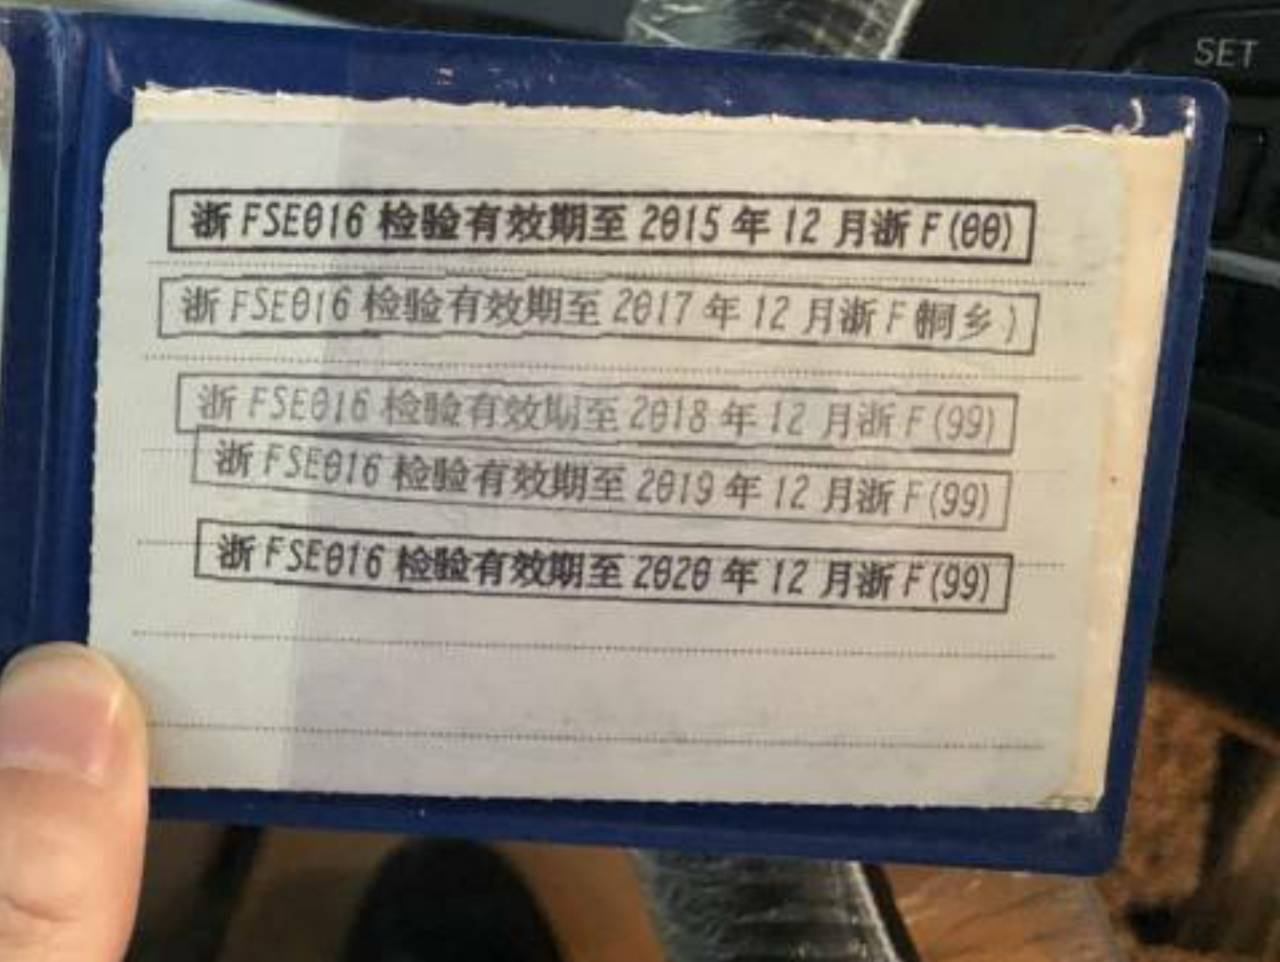 SET
浙FSE016检验有效期至2015年12月浙F(00)
浙FSE016检验有效期至2017年12月浙F(桐乡)
浙FSE016检验有效期至2018年12月浙F(99)
浙FSE016检验有效期至2019年12月浙F(99)
浙FSE016检验有效期至2020年12月浙F(99)